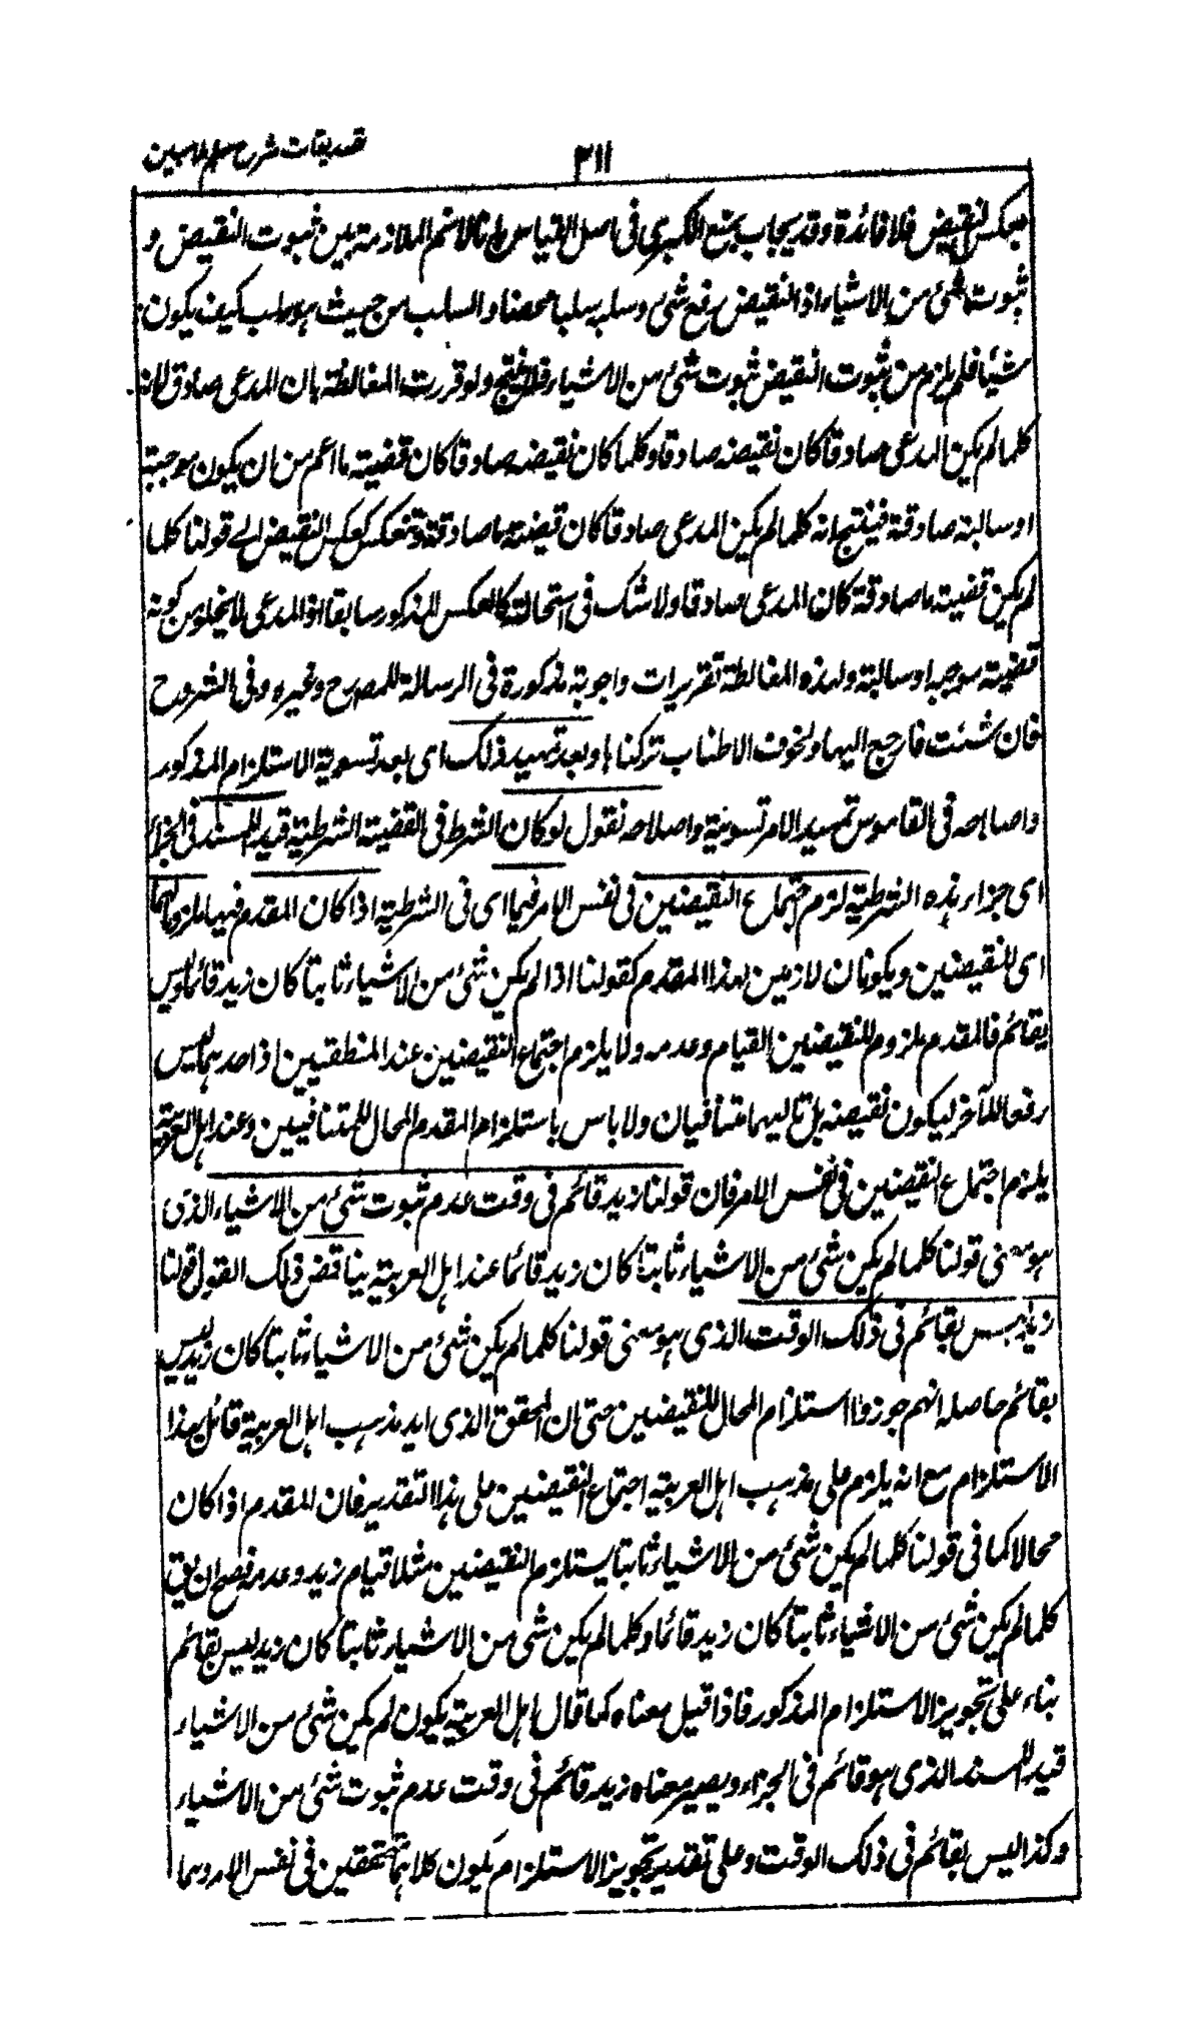 تصديقات شرح سلم لملا مبين
٣١١
بعكس النقيض فلا فائدة وقد يجاب بمنع الكبرى فى اصل القياس بانا لا نسلم الملازمة بين ثبوت النقيض و
ثبوت شئ من الاشياء اذ النقيض رفع شئ وسلبه سلبا محضا والسلب من حيث هو سلب كيف يكون
شيئا فلم يلزم من ثبوت النقيض ثبوت شئ من الاشياء فلا ينتج ولو قررت المغالطة بان المدعى صادق لانه
كلما لم يكن المدعى صادقا كان نقيضه صادقا وكلما كان نقيضه صادقا كان قضية ما اعم من ان يكون موجبة
او سالبة صادقة فينتج انه كلما لم يكن المدعى صادقا كان قضية ما صادقة وتنعكس كعكس النقيض الى قولنا كلما
لم يكن قضية ما صادقة كان المدعى صادقا ولا شك فى استحالته كالعكس المذكور سابقا اذ المدعى لا يخلو من كونه
قضية موجبة او سالبة ولهذه المغالطة تقريرات واجوبة مذكورة فى الرسالة للمصرح وغيره وفى الشروح
فان شئت فارجع اليها ولخوف الاطناب تركناها وبعد تمهيد ذلك اى بعد تسوية الاستلزام المذكور
واصلاحه فى القاموس تمهيد الامر تسويته واصلاحه نقول لو كان الشرط فى القضية الشرطية قيد المسند فى الجزاء
اى جزاء هذه الشرطية لزم اجتماع النقيضين فى نفس الامر فيما اى فى الشرطية اذا كان المقدم فيها ملزوما لهما
اى للنقيضين ويكونان لازمين لهذا المقدم كقولنا اذا لم يكن شئ من الاشياء ثابتا كان زيد قائما وليس
بقائم فالمقدم ملزوم للنقيضين القيام وعدمه ولا يلزم اجتماع النقيضين عند المنطقيين اذ احدهما ليس
رفعا للآخر ليكون نقيضه بل تاليهما متنافيان ولا باس باستلزام المقدم المحال للمتنافيين وعند اهل العربية
يلزم اجتماع النقيضين فى نفس الامر فان قولنا زيد قائم فى وقت عدم ثبوت شئ من الاشياء الذى
هو معنى قولنا كلما لم يكن شئ من الاشياء ثابتا كان زيد قائما عند اهل العربية يناقض ذلك القول قولنا
زيد ليس بقائم فى ذلك الوقت الذى هو معنى قولنا كلما لم يكن شئ من الاشياء ثابتا كان زيد ليس
بقائم حاصله انهم جوزوا استلزام المحال للنقيضين حتى ان المحقق الذى ايد مذهب اهل العربية قائل بهذا
الاستلزام مع انه يلزم على مذهب اهل العربية اجتماع النقيضين على هذا التقدير فان المقدم اذا كان
محالا كما فى قولنا كلما لم يكن شئ من الاشياء ثابتا يستلزم النقيضين مثلا قيام زيد وعدمه فصح ان يق
كلما لم يكن شئ من الاشياء ثابتا كان زيد قائما وكلما لم يكن شئ من الاشياء ثابتا كان زيد ليس بقائم
بناء على تجويز الاستلزام المذكور فاذا قيل معناه كما قال اهل العربية يكون لم يكن شئ من الاشياء
قيد المسند الذى هو قائم فى الجزاء ويصير معناه زيد قائم فى وقت عدم ثبوت شئ من الاشياء
وكذا ليس بقائم فى ذلك الوقت وعلى تقدير تجويز الاستلزام يكون كلاهما متحققين فى نفس الامر وهما